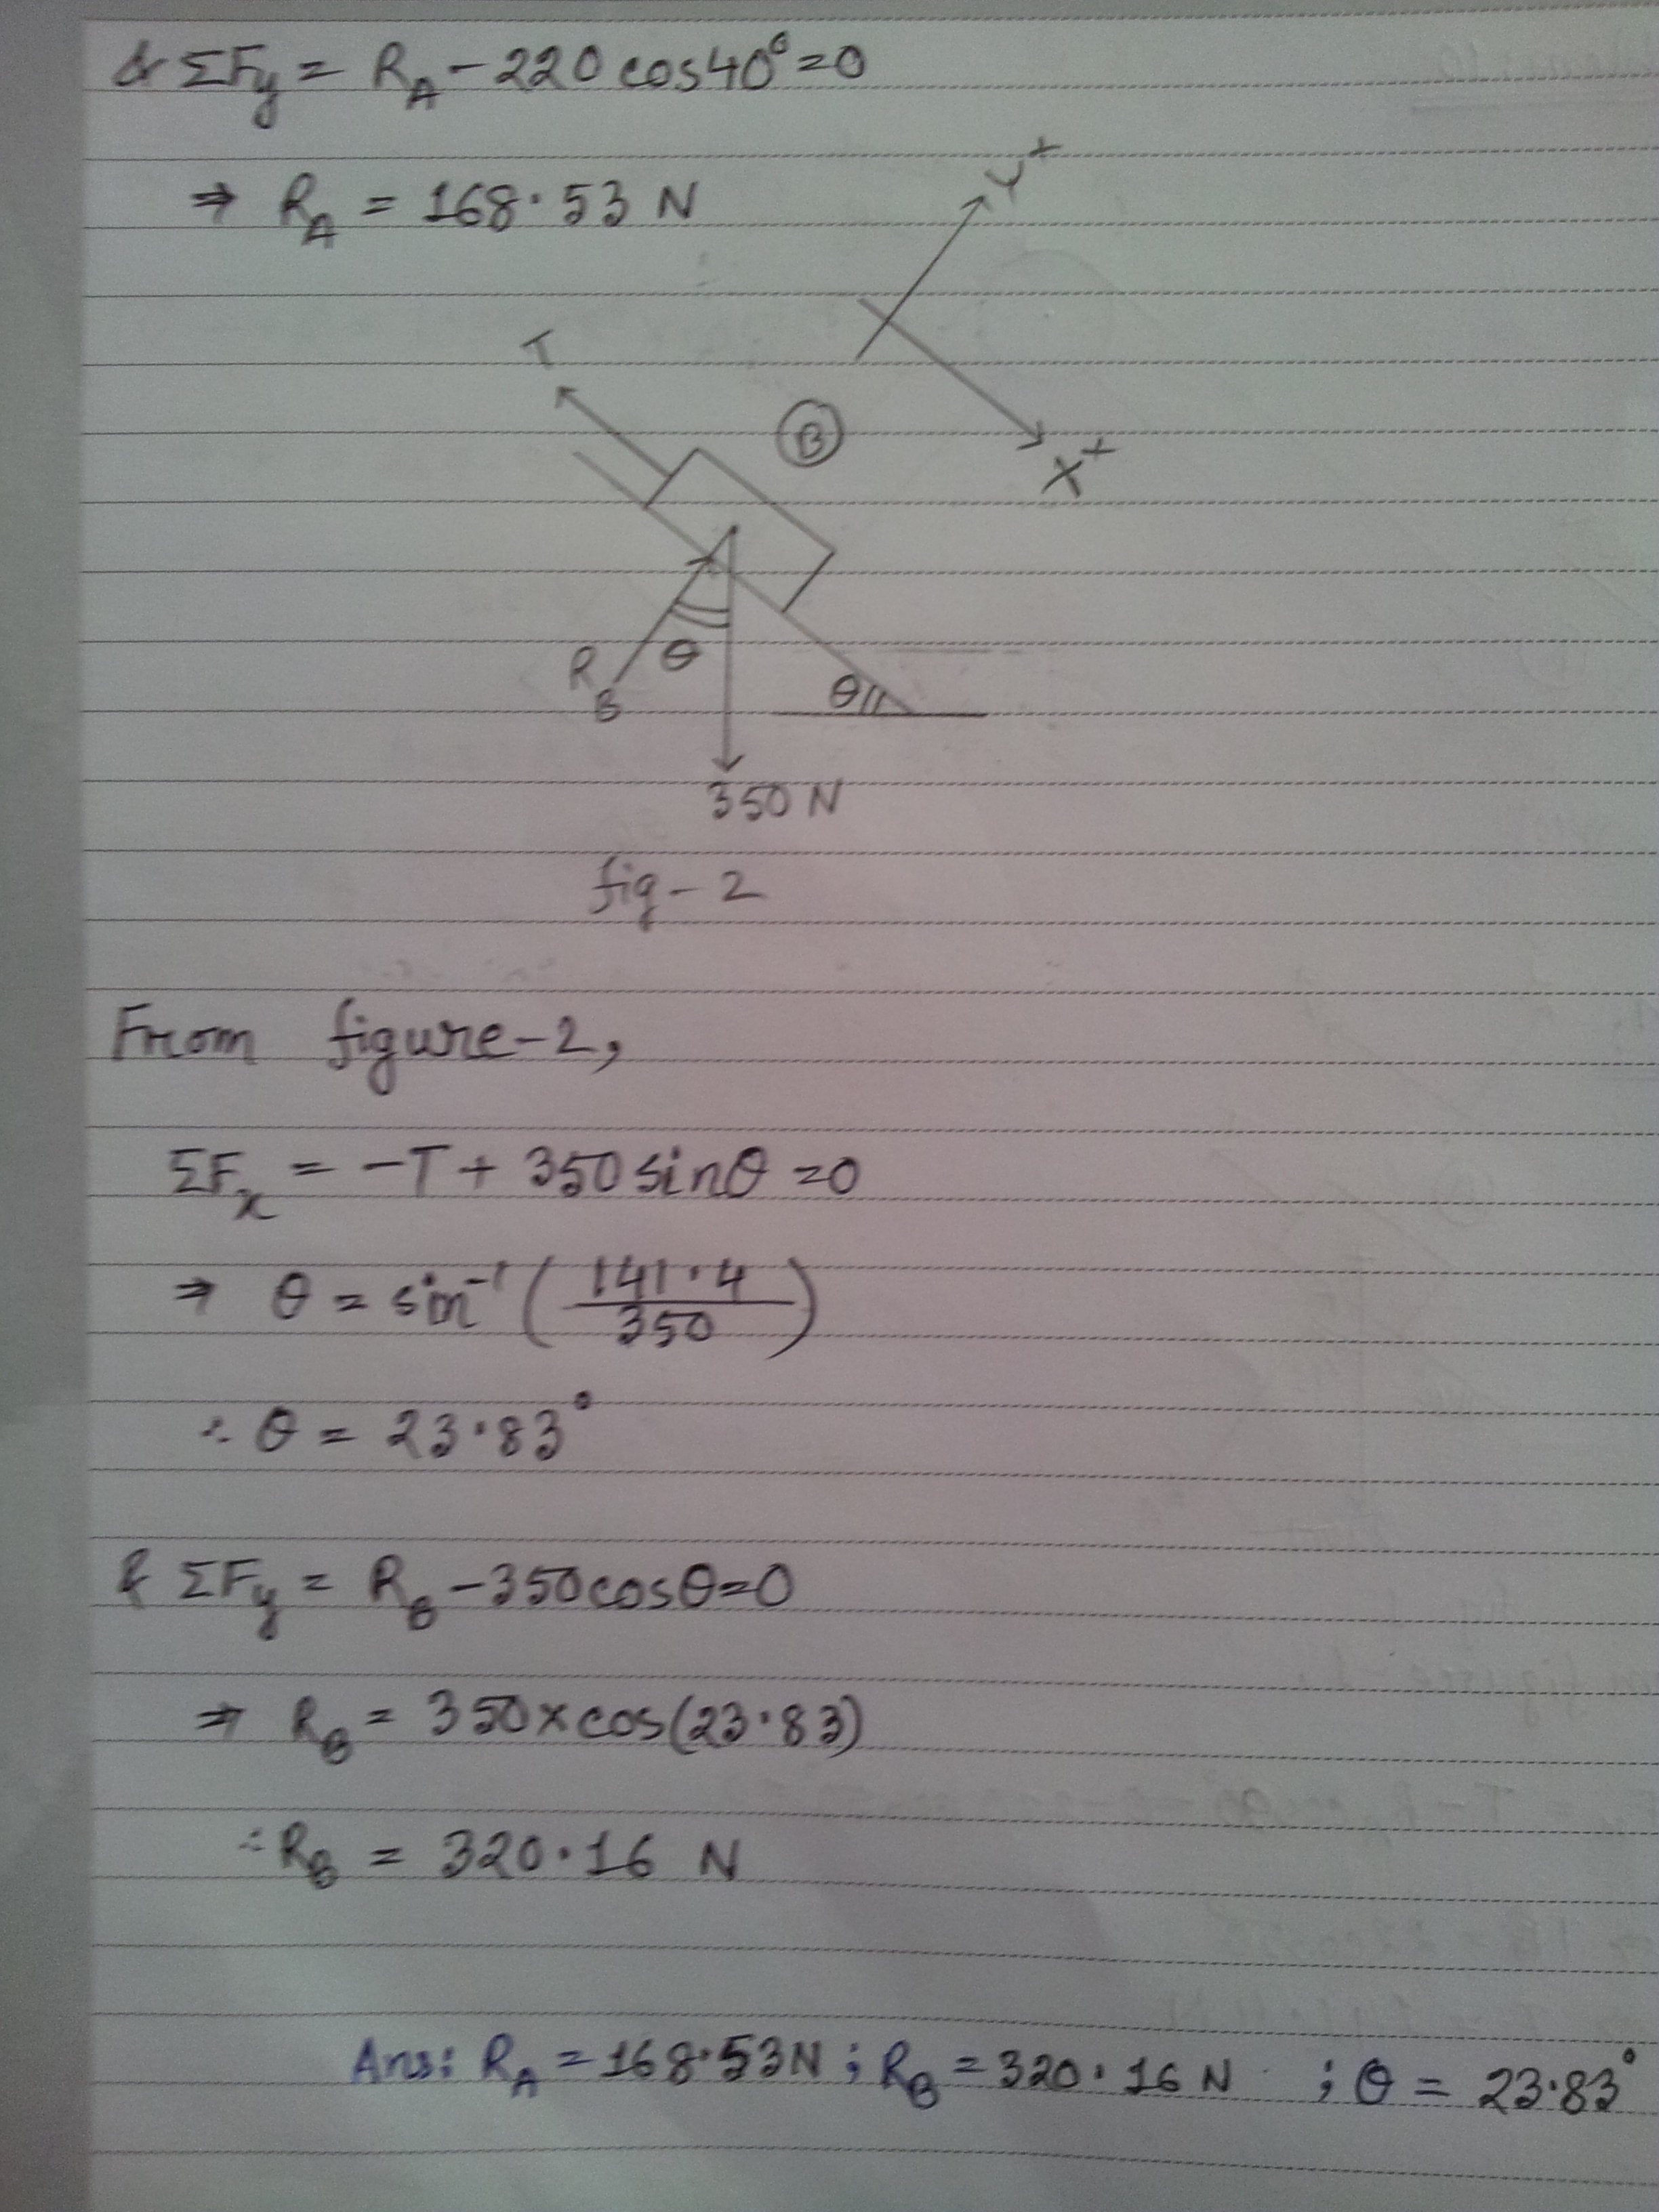 & ΣFy = RA - 220 cos40° = 0
⇒ RA = 168.53 N
Y+
T
B
X+
RB
θ
θ
350 N
fig-2
From figure-2,
ΣFx = -T + 350 sinθ = 0
⇒ θ = sin⁻¹ (141.4/350)
∴ θ = 23.83°
& ΣFy = RB - 350cosθ = 0
⇒ RB = 350 x cos(23.83)
∴ RB = 320.16 N
Ans: RA = 168.53N ; RB = 320.16 N ; θ = 23.83°